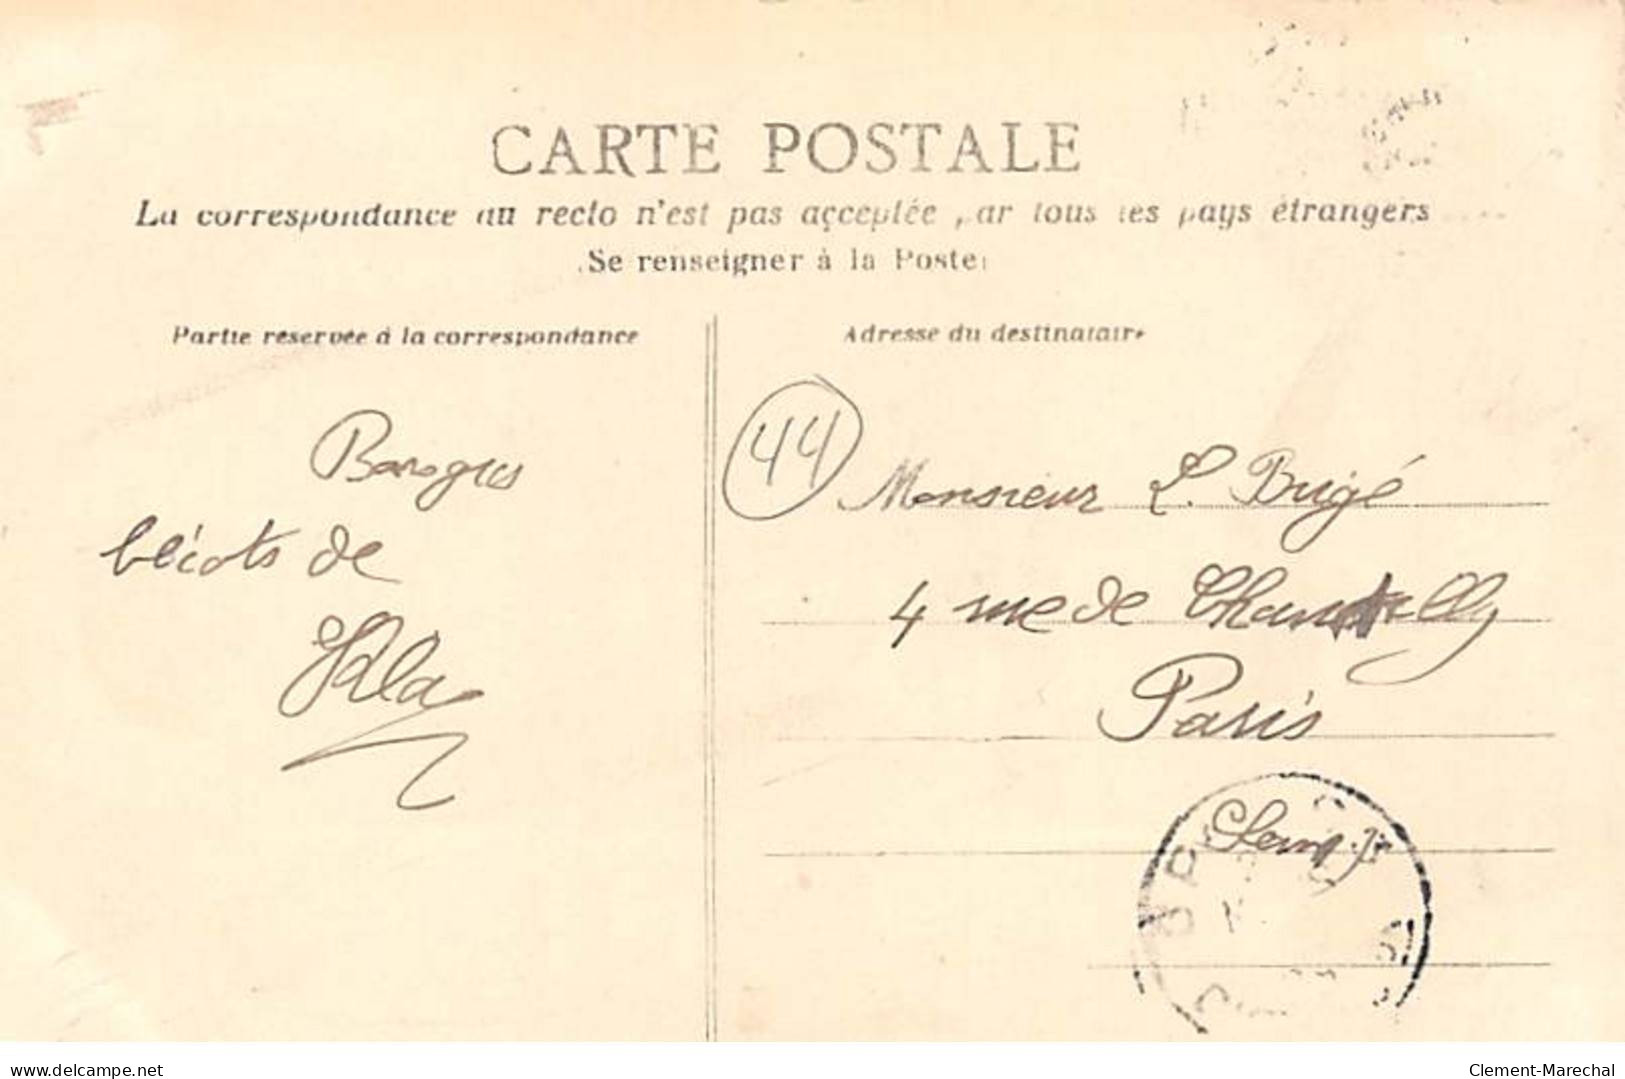 CARTE POSTALE
La correspondance au recto n'est pas acceptée par tous les pays étrangers
Se renseigner à la Poste
Partie réservée à la correspondance
bécots de
Adresse du destinataire
44
Monsieur L. Brigé
4 rue de Chantelly
Paris
delcampe.net
Clement-Marechal